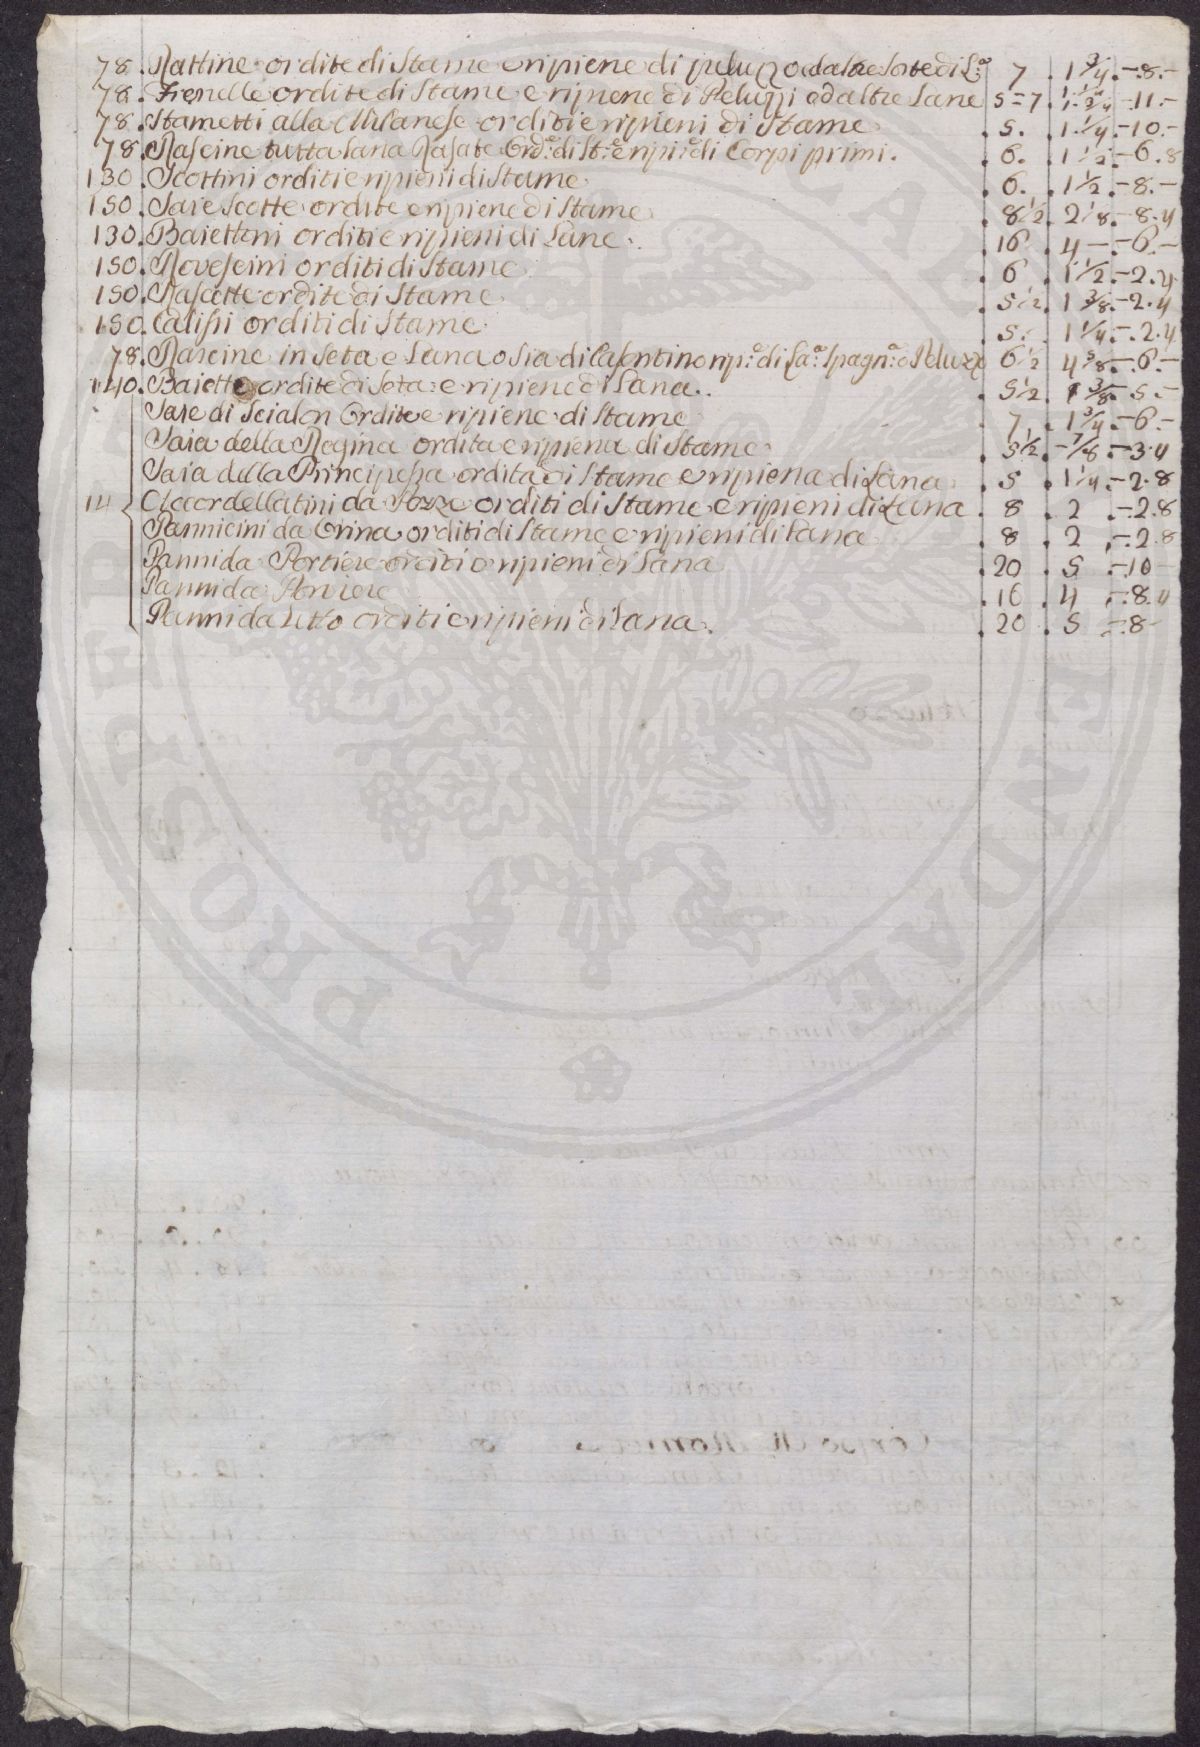 78. Rattine ordite di Stame e ripiene di peluzzo o da altre sorte di L:a 7 . 1 3/4 . - 8 . -
78. Frenelle ordite di Stame e ripiene di Peluzzi o d altre Lane 5=7 . 1 1/4 - 11 . -
78. Stametti alla Milanese orditi e ripieni di Stame . 5. . 1 1/4 . - 10 . -
78. Rascine tutta lana Rasate Ord:e di St:e e ripi:e di Corpi primi . . 6. . 1 1/2 . - 6 . 8
130. Scottini orditi e ripieni di Stame . 6. . 1 1/2 . - 8 . -
150. Saie Scotte ordite e ripiene di Stame . 8 1/2 . 2 1/8 . - 8 . 4
130. Baiettoni orditi e ripieni di Lane . . 16 . 4 - - 6 . -
150. Rovescini orditi di Stame . 6 . 1 1/2 . - 2 . 4
150. Rascette ordite di Stame . 5 1/2 . 1 3/8 . - 2 . 4
150. Calissi orditi di Stame . 5. . 1 1/4 . - 2 . 4
78. Rascine in Seta e Lana o sia di Casentino rip:e di La:a Spagn:a o Peluzzo 6 1/2 . 4 5/8 . - 6 . -
140. Baiette ordite di Seta e ripiene di Lana . . 5 1/2 . 1 3/8 . - 5 . -
Saie di Scialon Ordite e ripiene di Stame . 7. . 1 3/4 . - 6 . -
Saia della Regina ordita e ripiena di Stame . 3 1/2 . - 7/8 . - 3 . 4
Saia della Principessa ordita di Stame e ripiena di Lana . 5 . 1 1/4 . - 2 . 8
141 Accordellatini da Pozze orditi di Stame e ripieni di Lana . 8 . 2 . - 2 . 8
Pannicini da Crina orditi di Stame e ripieni di Lana . 8 . 2 . - 2 . 8
Panni da Portiere orditi e ripieni di Lana . 20 . 5 . - 10 -
Panni da . 16 . 4 . - 8 . 4
Panni da Letto orditi e ripieni di Lana . . 20 . 5 . - 8 -